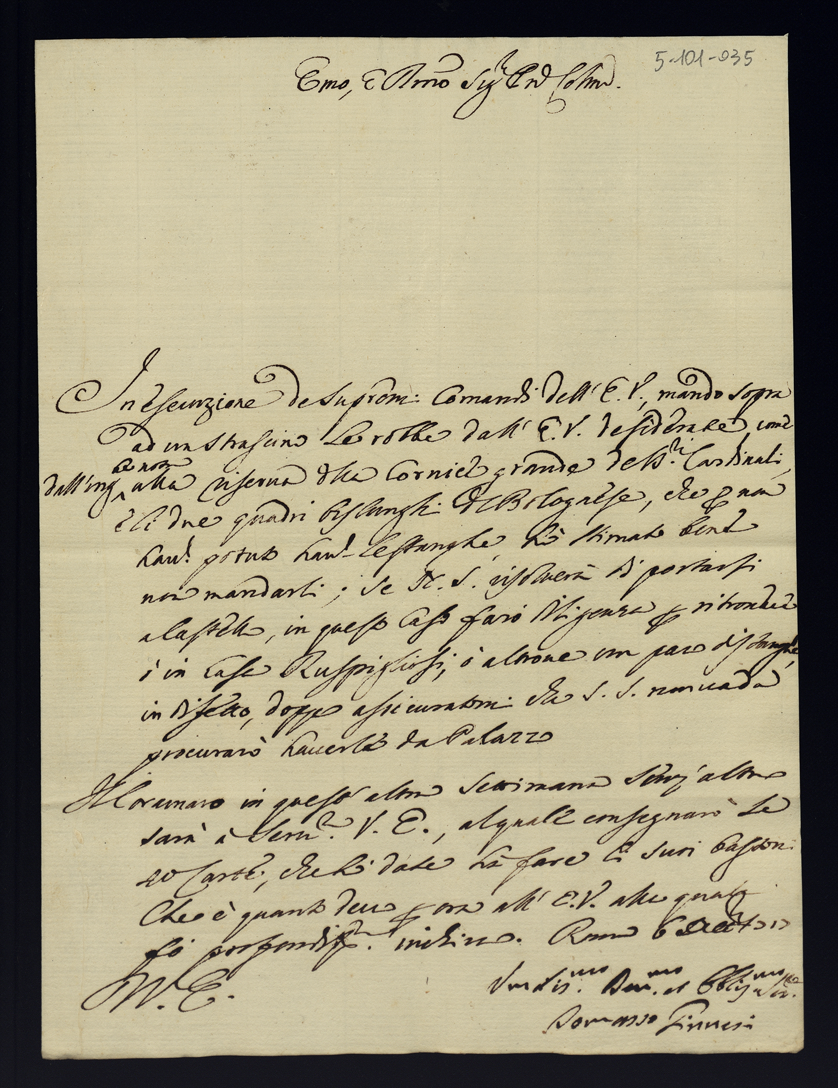 5-101-035
Emo, e Rmo Sigr Pne Colmo.
In esecuzione de supremi Comandi dell' E. V., mando sopra
ad un strascino le robbe dall' E. V. desiderate, come
dall' ing
alla riserva della Cornice grande de SSri Cardinali,
e li due quadri bislunghi del Bolognese, che p non
haver potuto haver le stanghe, hò stimato bene
non mandarli; se N. S. risolverà di portarsi
a Castello, in questo caso farò diligenza p ritrovare
ò in Casa Ruspigliosi, ò altrove un paro di stanghe,
in difetto, doppo assicuratomi che S. S. non vada
procurarò haverle da Palazzo
Il Coramaro in quest' altra Settimana senz' altro
sarà a servir V. E., al quale consegnarò le
Carte, che hò date à fare li suoi bastoni
Che è quanto devo p ora all' E. V. alla quale
fò profondissa inchino. Roma 6
V. E.
Umilismo Devmo et Obligmo Serre
Tommaso